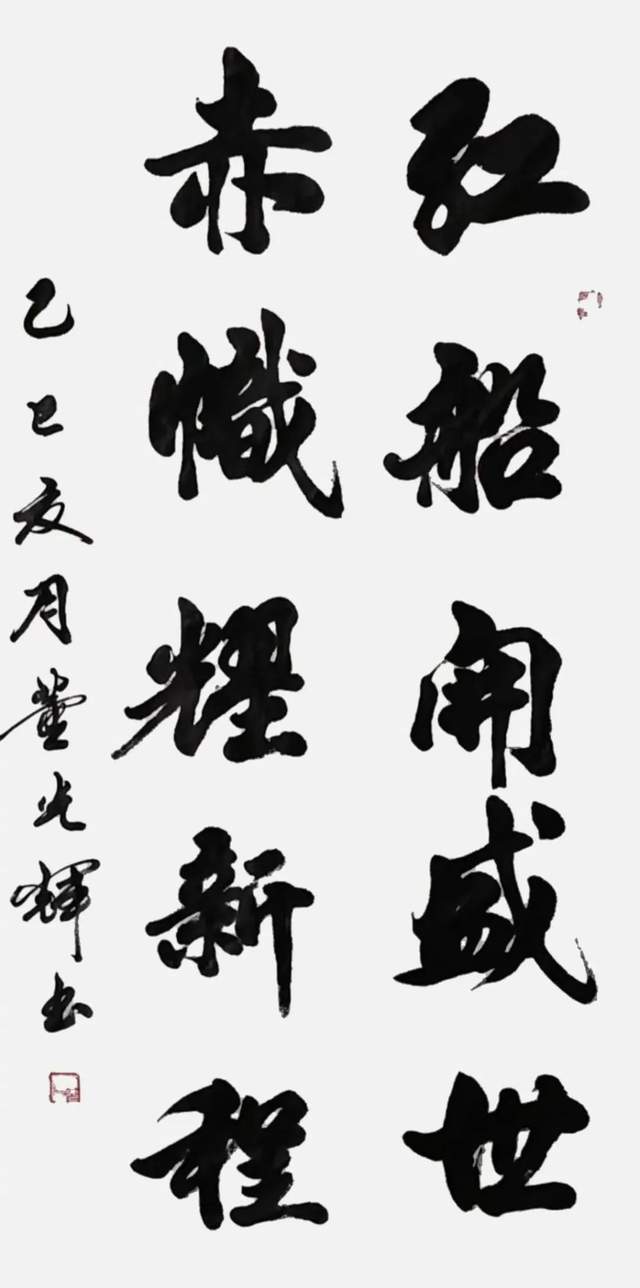 红船开盛世
赤帜耀新程
乙巳夏月董光辉书